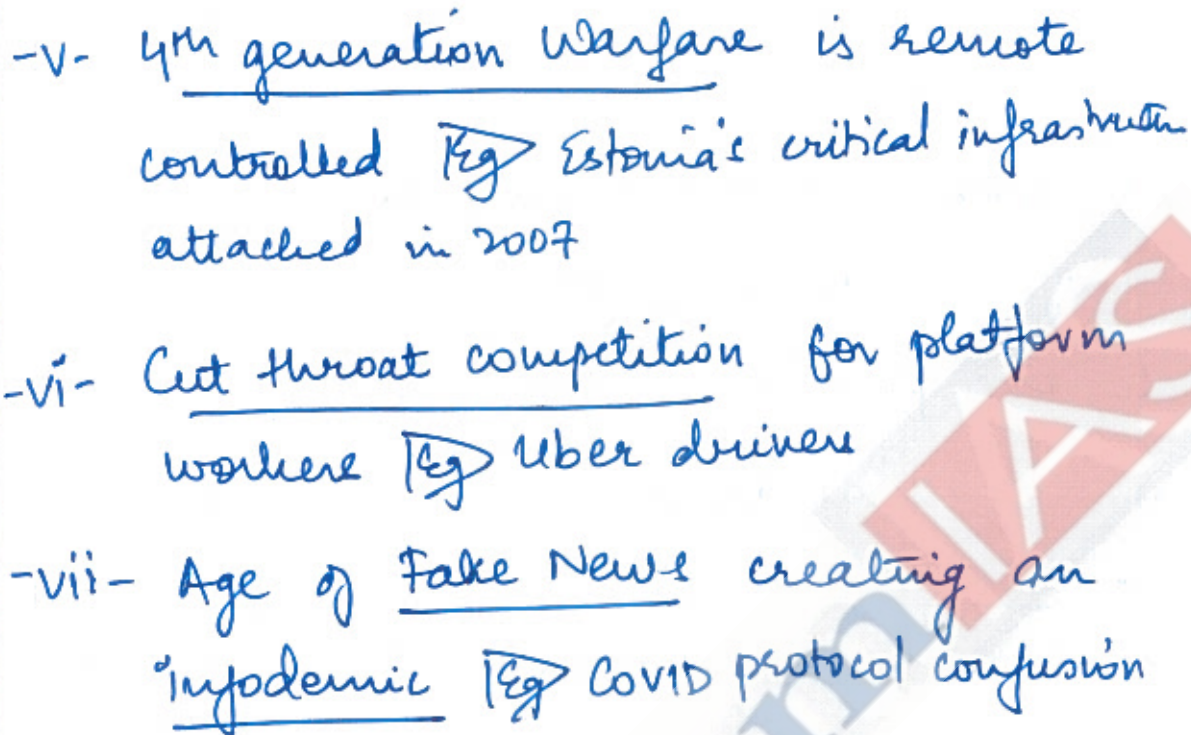 -v- 4th generation Warfare is remote
controlled Eg Estonia's critical infrastructure
attacked in 2007
-vi- Cut throat competition for platform
workers Eg Uber drivers
-vii- Age of Fake News creating an
infodemic Eg COVID protocol confusion
mIAS